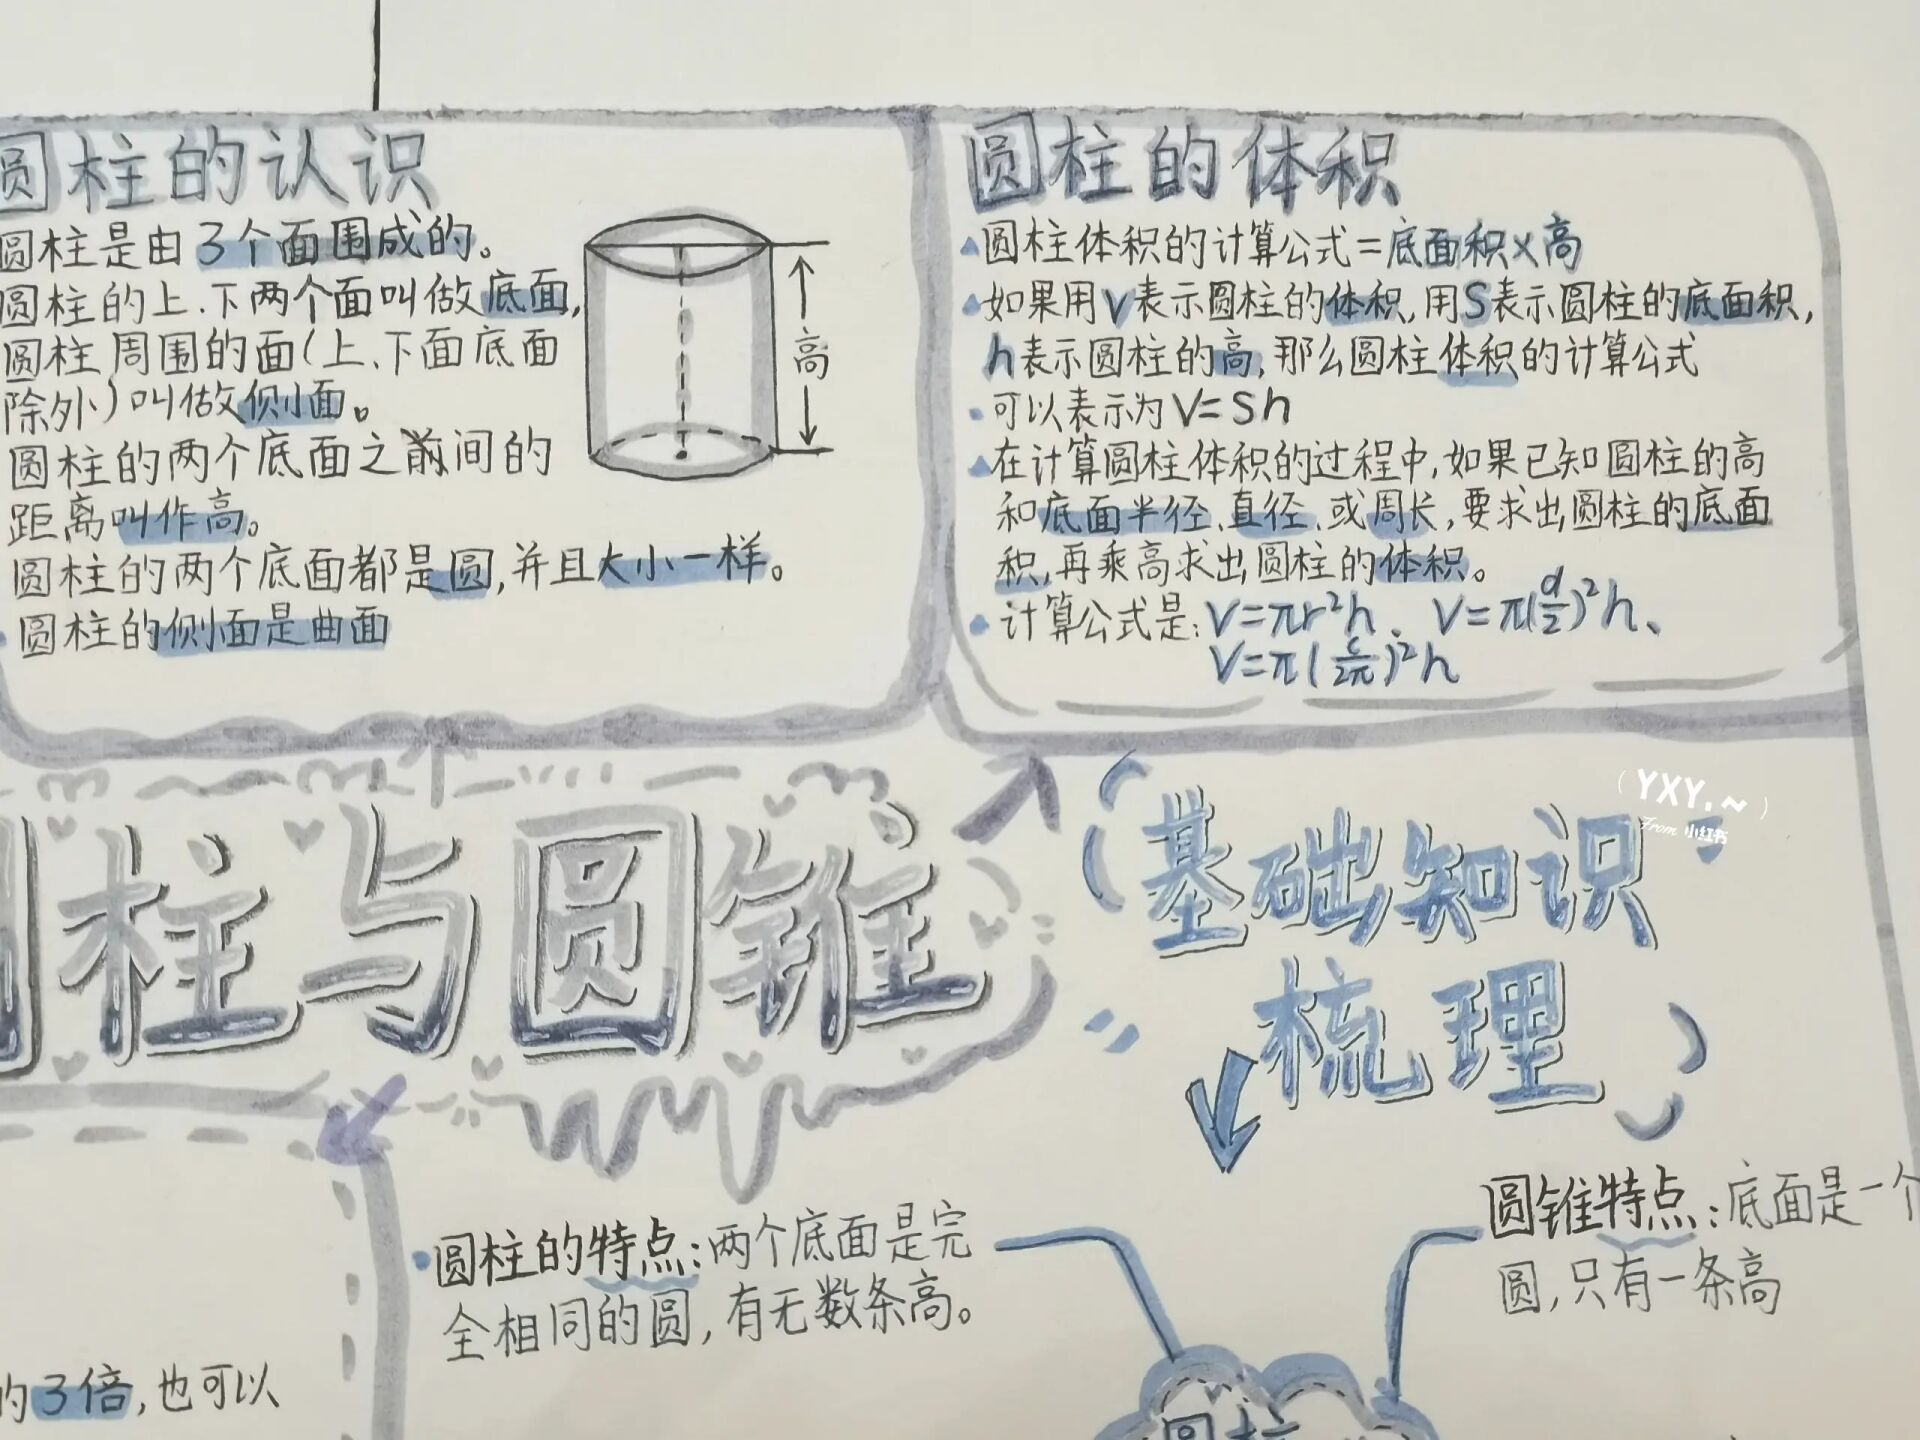 圆柱的认识
圆柱是由3个面围成的。
圆柱的上、下两个面叫做底面,
圆柱周围的面(上、下面底面
除外)叫做侧面。
圆柱的两个底面之前间的
距离叫作高。
圆柱的两个底面都是圆,并且大小一样。
圆柱的侧面是曲面
高
圆柱的体积
圆柱体积的计算公式=底面积×高
如果用V表示圆柱的体积,用S表示圆柱的底面积,
h表示圆柱的高,那么圆柱体积的计算公式
可以表示为V=Sh
在计算圆柱体积的过程中,如果已知圆柱的高
和底面半径、直径、或周长,要求出圆柱的底面
积,再乘高求出圆柱的体积。
计算公式是:V=πr²h、V=π(d/2)²h、
V=π(c/2π)²h
圆柱与圆锥
(YXY.~)
From 小红书
基础知识
梳理
圆柱的特点:两个底面是完
全相同的圆,有无数条高。
圆锥特点:底面是一个
圆,只有一条高
的3倍,也可以
圆柱